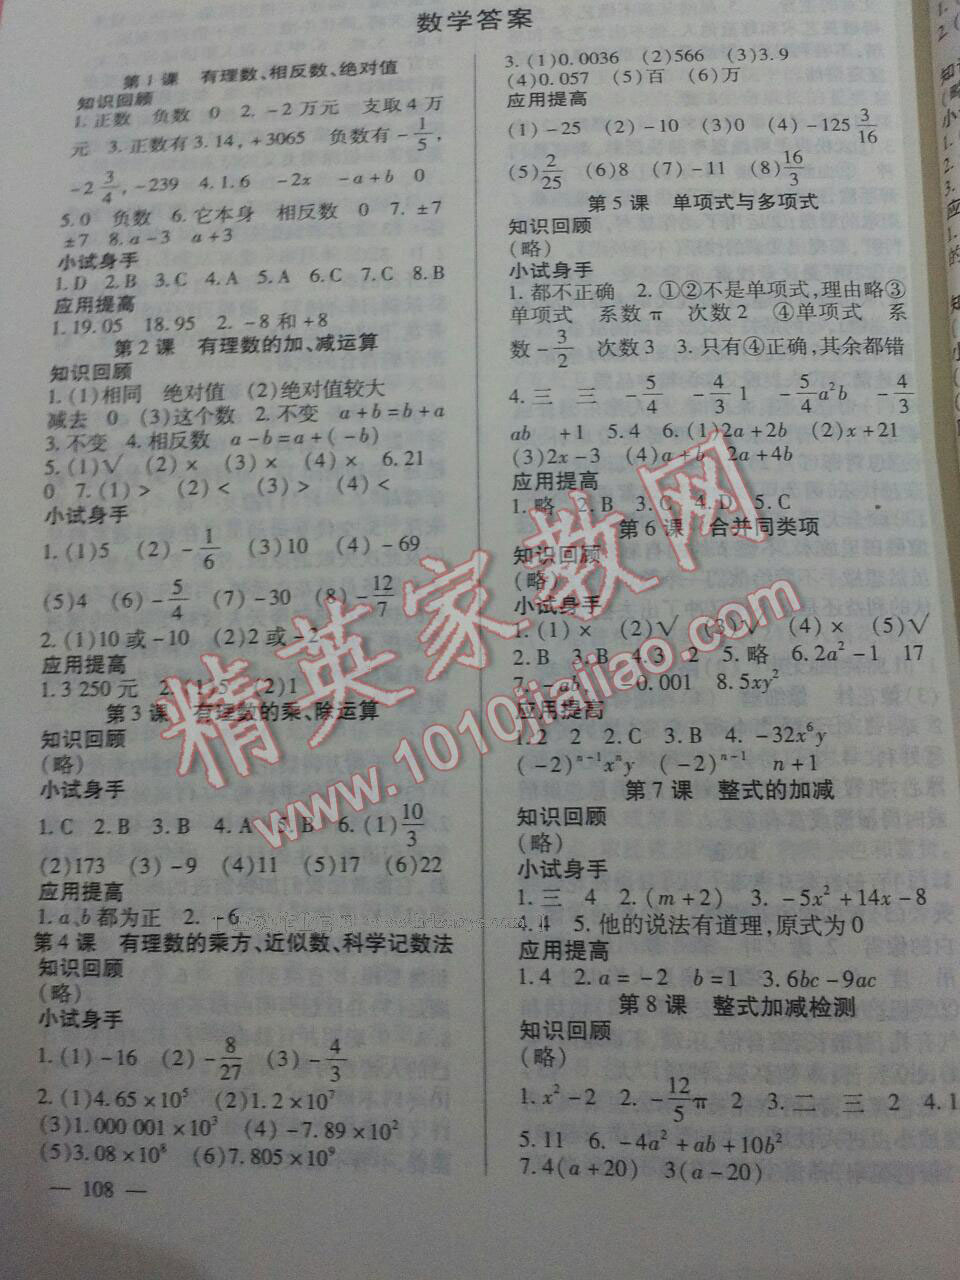 数学答案
第1课 有理数、相反数、绝对值
知识回顾
1. 正数 负数 0 2. -2万元 支取4万
元 3. 正数有3.14, +3065 负数有-1/5,
-2 3/4, -239 4. 1.6 -2x -a+b 0
5. 0 负数 6. 它本身 相反数 0 7. ±7
±7 8. a-3 a+3
小试身手
1. D 2. B 3. C 4. A 5. A 6. C 7. C 8. B
应用提高
1. 19.05 18.95 2. -8和+8
第2课 有理数的加、减运算
知识回顾
1. (1)相同 绝对值 (2)绝对值较大
减去 0 (3)这个数 2. 不变 a+b=b+a
3. 不变 4. 相反数 a-b=a+(-b)
5. (1)√ (2)× (3)× (4)× 6. 21
0 7. (1)> (2)< (3)> (4)<
小试身手
1. (1)5 (2)-1/6 (3)10 (4)-69
(5)4 (6)-5/4 (7)-30 (8)-12/7
2. (1)10或-10 (2)2或-2
应用提高
1. 3 250元 2. (1)5 (2)1
第3课 有理数的乘、除运算
知识回顾
(略)
小试身手
1. C 2. B 3. B 4. A 5. B 6. (1)10/3
(2)173 (3)-9 (4)11 (5)17 (6)22
应用提高
1. a、b都为正 2. -6
第4课 有理数的乘方、近似数、科学记数法
知识回顾
(略)
小试身手
1. (1)-16 (2)-8/27 (3)-4/3
2. (1)4.65×10⁵ (2)1.2×10⁷
(3)1.000 001×10³ (4)-7.89×10²
(5)3.08×10⁸ (6)7.805×10⁹
— 108 —
3. (1)0.0036 (2)566 (3)3.9
(4)0.057 (5)百 (6)万
应用提高
(1)-25 (2)-10 (3)0 (4)-125 3/16
(5)2/25 (6)8 (7)-11 (8)16/3
第5课 单项式与多项式
知识回顾
(略)
小试身手
1. 都不正确 2. ①②不是单项式,理由略③
单项式 系数π 次数2 ④单项式 系
数-3/2 次数3 3. 只有④正确,其余都错
4. 三 三 -5/4 -4/3 1 -5/4a²b -4/3
ab +1 5. 4 6. (1)2a+2b (2)x+21
(3)2x-3 (4)a+b 2a+4b
应用提高
1. 略 2. B 3. C 4. D 5. C
第6课 合并同类项
知识回顾
(略)
小试身手
1. (1)× (2)√ (3)√ (4)× (5)√
2. B 3. B 4. 3 2 5. 略 6. 2a²-1 17
7. -ab, 0.001 8. 5xy²
应用提高
1. 2 2 2. C 3. B 4. -32x⁶y
(-2)ⁿ⁻¹xⁿy (-2)ⁿ⁻¹ n+1
第7课 整式的加减
知识回顾
(略)
小试身手
1. 三 4 2. (m+2) 3. -5x²+14x-8
4. 4 5. 他的说法有道理,原式为0
应用提高
1. 4 2. a=-2 b=1 3. 6bc-9ac
第8课 整式加减检测
知识回顾
(略)
1. x²-2 2. -12/5π 2 3. 二 三 2 4. 1
5. 11 6. -4a²+ab+10b²
7. 4(a+20) 3(a-20)
精英家教网
www.1010jiajiao.com